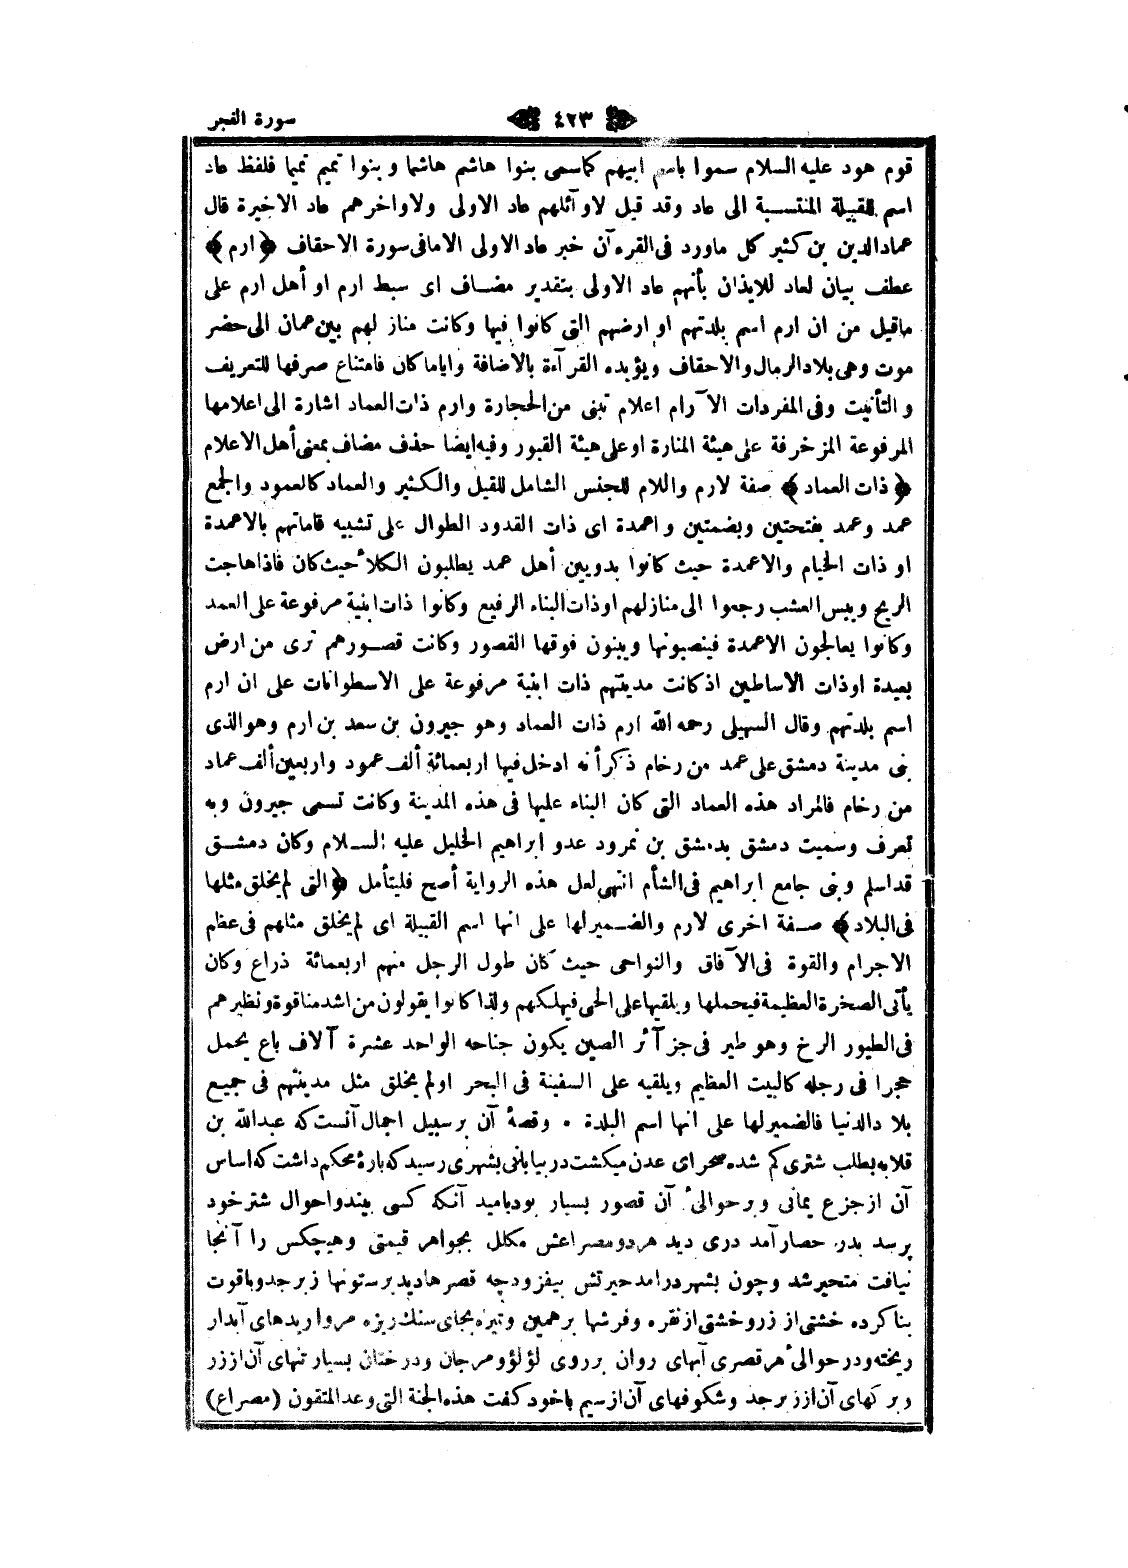 سورة الفجر ٤٢٣
قوم هود عليه السلام سموا باسم ابيهم كماسمى بنوا هاشم هاشما وبنوا تميم تميما فلفظ عاد
اسم للقبيلة المنتسبة الى عاد وقد قيل لاوآئلهم عاد الاولى ولاواخرهم عاد الاخيرة قال
عمادالدين بن كثير كل ماورد فى القرءآن خبر عاد الاولى الامافى سورة الاحقاف ﴿ ارم ﴾
عطف بيان لعاد للايذان بأنهم عاد الاولى بتقدير مضاف اى سبط ارم او أهل ارم على
ماقيل من ان ارم اسم بلدتهم او ارضهم التى كانوا فيها وكانت مناز لهم بين عمان الى حضر
موت وهى بلاد الرمال والاحقاف ويؤيده القرآءة بالاضافة واياما كان فامتناع صرفها للتعريف
والتأنيت وفى المفردات الآرام اعلام تبنى من الحجارة وارم ذات العماد اشارة الى اعلامها
المرفوعة المزخرفة على هيئة المنارة او على هيئة القبور وفيه ايضا حذف مضاف بمعنى أهل الاعلام
﴿ ذات العماد ﴾ صفة لارم واللام للجنس الشامل للقيل والكثير والعماد كالعمود والجمع
عمد وعمد بفتحتين وبضمتين واعمدة اى ذات القدود الطوال على تشبيه قاماتهم بالاعمدة
او ذات الخيام والاعمدة حيث كانوا بدويين أهل عمد يطلبون الكلأ حيث كان فاذا هاجت
الريح ويبس العشب رجعوا الى منازلهم اوذات البناء الرفيع وكانوا ذات ابنية مرفوعة على العمد
وكانوا يعالجون الاعمدة فينصبونها ويبنون فوقها القصور وكانت قصورهم ترى من ارض
بعيدة اوذات الاساطين اذكانت مدينتهم ذات ابنية مرفوعة على الاسطوانات على ان ارم
اسم بلدتهم وقال السهيلى رحمه الله ارم ذات العماد وهو جيرون بن سعد بن ارم وهو الذى
بنى مدينة دمشق على عمد من رخام ذكر أنه ادخل فيها اربعمائة ألف عمود واربعين ألف عماد
من رخام فالمراد هذه العماد التى كان البناء عليها فى هذه المدينة وكانت تسمى جيرون وبه
تعرف وسميت دمشق بدمشق بن نمرود عدو ابراهيم الخليل عليه السلام وكان دمشق
قداسلم وبنى جامع ابراهيم فى الشأم انتهى لعل هذه الرواية أصح فليتأمل ﴿ التى لم يخلق مثلها
فى البلاد ﴾ صفة اخرى لارم والضمير لها على انها اسم القبيلة اى لم يخلق مثلهم فى عظم
الاجرام والقوة فى الآفاق والنواحى حيث كان طول الرجل منهم اربعمائة ذراع وكان
يأتى الصخرة العظيمة فيحملها ويلقيها على الحى فيهلكهم ولذا كانوا يقولون من اشد منا قوة ونظيرهم
فى الطيور الرخ وهو طير فى جزآئر الصين يكون جناحه الواحد عشرة آلاف باع يحمل
حجرا فى رجله كالبيت العظيم ويلقيه على السفينة فى البحر اولم يخلق مثل مدينتهم فى جميع
بلا دالدنيا فالضمير لها على انها اسم البلدة ٠ وقصهٔ آن برسبيل اجمال آنست كه عبدالله بن
قلابه بطلب شترى كم شده صحراى عدن ميكشت در بيابانى بشهرى رسيد كه بارهٔ محكم داشت كه اساس
آن ازجزع يمانى وبرحوالىٔ آن قصور بسيار بود باميد آنكه كسى بيند واحوال شترخود
پرسد بدر حصار آمد درى ديد هردو مصراعش مكلل بجواهر قيمتى وهيچكس را آنجا
نيافت متحير شد وچون بشهر درامد حيرتش بيفزود چه قصرها ديد برستونها زبرجد وياقوت
بنا كرده خشتى از زر وخشتى از نقره وفرشها برهمين وتيره بجاى سنك ريزه مرواريدهاى آبدار
ريخته ودرحوالىٔ هرقصرى آبهاى روان برروى لؤلؤ ومرجان ودرختان بسيار تنهاى آن اززر
وبركهاى آن اززبرجد وشكوفهاى آن ازسيم باخود كفت هذه الجنة التى وعد المتقون (مصراع)